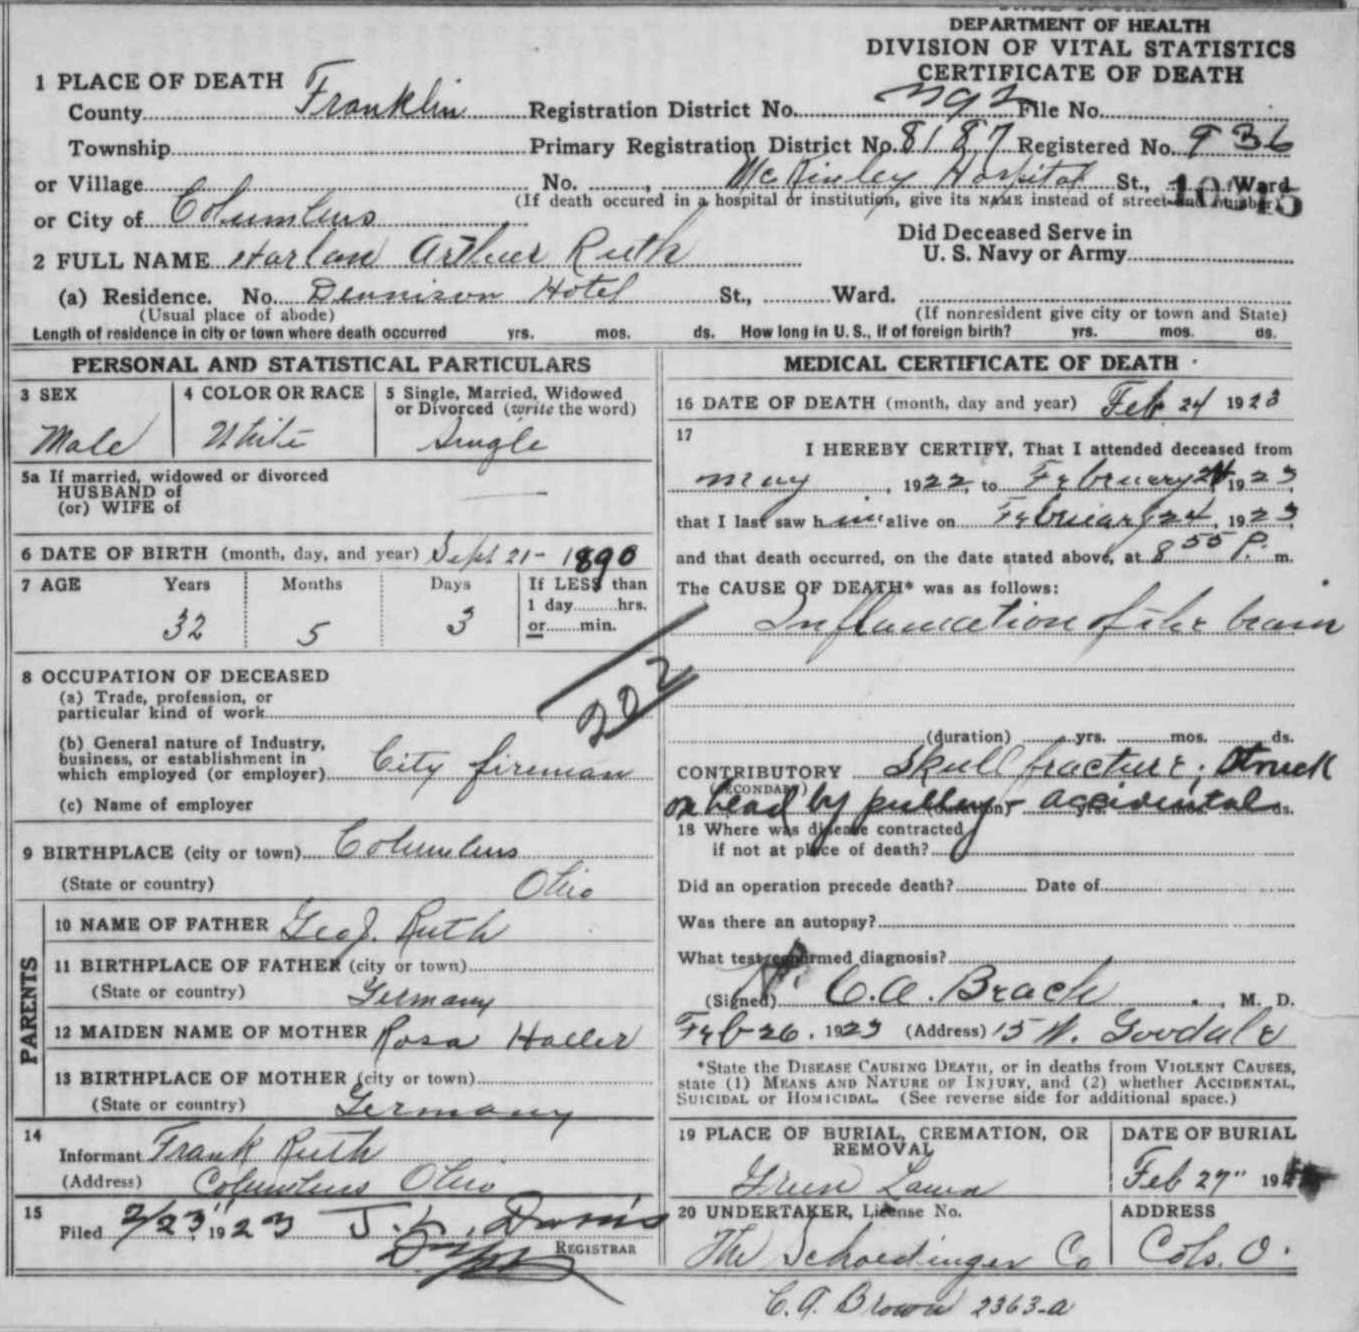 DEPARTMENT OF HEALTH
DIVISION OF VITAL STATISTICS
CERTIFICATE OF DEATH
1 PLACE OF DEATH
County Franklin Registration District No. 392 File No.
Township Primary Registration District No. 8187 Registered No. 936
or Village No. , McKinley Hospital St., Ward
(If death occured in a hospital or institution, give its NAME instead of street and number)
or City of Columbus
Did Deceased Serve in
U. S. Navy or Army
2 FULL NAME Harlan Arthur Ruth
(a) Residence. No. Dennison Hotel St., Ward.
(Usual place of abode) (If nonresident give city or town and State)
Length of residence in city or town where death occurred yrs. mos. ds. How long in U. S., if of foreign birth? yrs. mos. ds.
PERSONAL AND STATISTICAL PARTICULARS
3 SEX
Male
4 COLOR OR RACE
White
5 Single, Married, Widowed
or Divorced (write the word)
Single
5a If married, widowed or divorced
HUSBAND of
(or) WIFE of
6 DATE OF BIRTH (month, day, and year) Sept 21- 1890
7 AGE Years Months Days If LESS than
1 day hrs.
or min.
32 5 3
202
8 OCCUPATION OF DECEASED
(a) Trade, profession, or
particular kind of work
(b) General nature of Industry,
business, or establishment in
which employed (or employer) City fireman
(c) Name of employer
9 BIRTHPLACE (city or town) Columbus
(State or country) Ohio
PARENTS
10 NAME OF FATHER Geo J. Ruth
11 BIRTHPLACE OF FATHER (city or town)
(State or country) Germany
12 MAIDEN NAME OF MOTHER Rosa Haller
13 BIRTHPLACE OF MOTHER (city or town)
(State or country) Germany
14
Informant Frank Ruth
(Address) Columbus Ohio
15
Filed 2/23", 1923 J. Davis
REGISTRAR
MEDICAL CERTIFICATE OF DEATH
16 DATE OF DEATH (month, day and year) Feb 24 1923
17
I HEREBY CERTIFY, That I attended deceased from
May , 1922, to February 24 1923,
that I last saw him alive on February 24, 1923
and that death occurred, on the date stated above, at 8 55 P. m.
The CAUSE OF DEATH* was as follows:
Inflamation of the brain
(duration) yrs. mos. ds.
CONTRIBUTORY Skull fracture; Struck
(SECONDARY)
on head by pulley - accidental
(duration) yrs. mos. ds.
18 Where was disease contracted
if not at place of death?
Did an operation precede death? Date of
Was there an autopsy?
What test confirmed diagnosis?
(Signed) C. A. Brach , M. D.
Feb-26. 1923 (Address) 15 W. Goodale
*State the DISEASE CAUSING DEATH, or in deaths from VIOLENT CAUSES,
state (1) MEANS AND NATURE OF INJURY, and (2) whether ACCIDENTAL,
SUICIDAL or HOMICIDAL. (See reverse side for additional space.)
19 PLACE OF BURIAL, CREMATION, OR
REMOVAL
Green Lawn
DATE OF BURIAL
Feb 27" 19
20 UNDERTAKER, License No.
The Schoedinger Co
ADDRESS
Cols. O.
C. A. Brown 2363-a